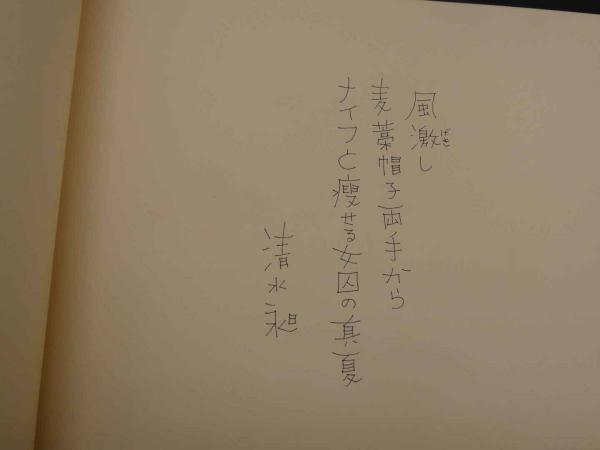 風激し
げき
麦藁帽子両手から
ナイフと痩せる女囚の真夏
清水昶